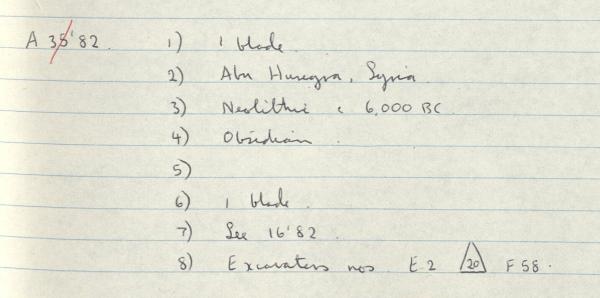 A 35'82. 1) 1 blade.
2) Abu Hureyra, Syria.
3) Neolithic c 6,000 BC.
4) Obsidian.
5)
6) 1 blade.
7) See 16'82.
8) Excavators nos E.2 20 F 58.